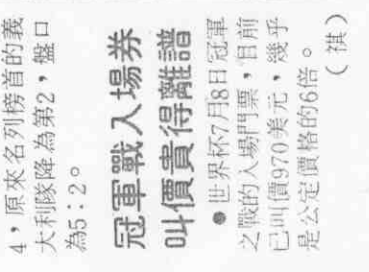 4，原來名列榜首的義
大利隊降為第2，盤口
為5：2。
冠軍戰入場券
叫價貴得離譜
●世界杯7月8日冠軍
之戰的入場門票，目前
已叫價970美元，幾乎
是公定價格的6倍。
（祺）